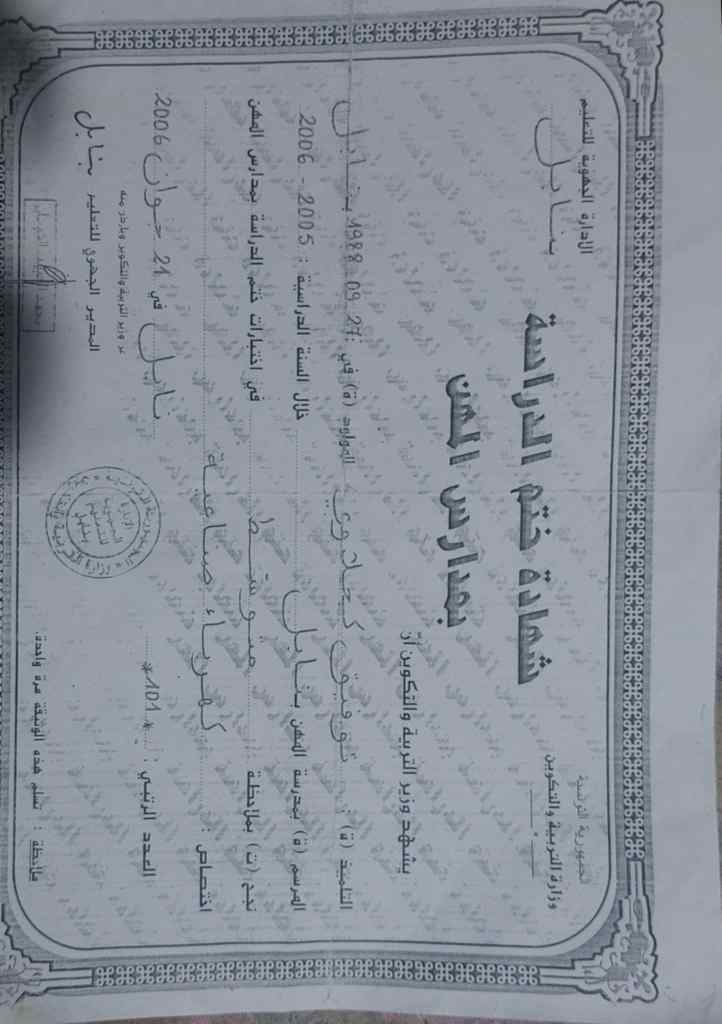 الجمهورية التونسية
وزارة التربية والتكوين
الإدارة الجهوية للتعليم
بنابل
شهادة ختم الدراسة
بمدارس المهن
يشهد وزير التربية والتكوين أنّ
التلميذ (ة) : توفيق المولود (ة) في : 27 09 1988 بنابل
المرسم (ة) بمدرسة المهن بنابل خلال السنة الدراسية : 2005 - 2006
نجح (ت) بملاحظة متوسط في اختبارات ختم الدراسة بمدارس المهن
اختصاص : كهرباء صناعية
العدد الرتبي : *101* نابل في 21 جوان 2006
عن وزير التربية والتكوين وبإذن منه
المدير الجهوي للتعليم بنابل
ملاحظة : تسلم هذه الوثيقة مرة واحدة.